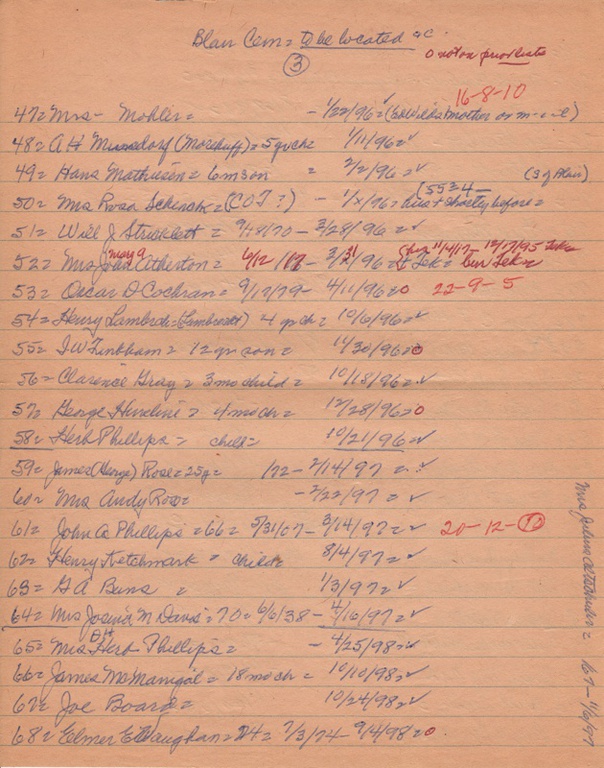 Blair Cem = to be located
o not on prior lists
3
16-8-10
47 = Mrs - Mohler = - 1/22/96 = ✓ (mother or m-i-l)
48 = A H (Morehuff) = 5 yr ch = 1/11/96 = ✓
49 = Hans Mathiesen = 6 m son = 2/2/96 = ✓ (S of Blair)
50 = Mrs Rosa Schenck = (COT?) - 96 = shortly before =
51 = Will J Stricklett = 9/18/70 - 3/28/96 = ✓
52 = Mrs Atherton = 6/12/17 - 3/31/96 bur Tek =
53 = Oscar D Cochran = 9/17/79 - 4/11/96 = o 22-9-5
54 = Henry Lambrecht = 4 yr ch = 10/6/96 = ✓
55 = I W Finkham = 12 yr son = 11/30/96 = o
56 = Clarence Gray = 3 mo child = 10/18/96 = ✓
57 = George Hineline = 4 mo ch = 12/28/96 = o
58 = Herb Phillips = child = 10/21/96 = ✓
59 = James (George) Rose = 25 = 1/72 - 2/14/97 = ✓
60 = Mrs Andy Rose = - 2/22/97 = ✓
61 = John A Phillips = 66 = 5/31/07 - 3/14/97 = ✓ 20-12-10
62 = Henry Ketchmark = child = 8/4/97 = ✓
63 = G A Buns = 1/3/97 = ✓
64 = Mrs N Davis = 70 = 6/6/38 - 4/16/97 = ✓
65 = Mrs Herb Phillips = - 4/25/98 = ✓
66 = James McManigal = 18 mo ch = 10/10/98 = ✓
67 = Joe Board = 10/24/98 = ✓
68 = Elmer E Vaughan = 24 = 7/3/74 - 9/4/98 = o
Mrs Julius = 67 - 11/6/97